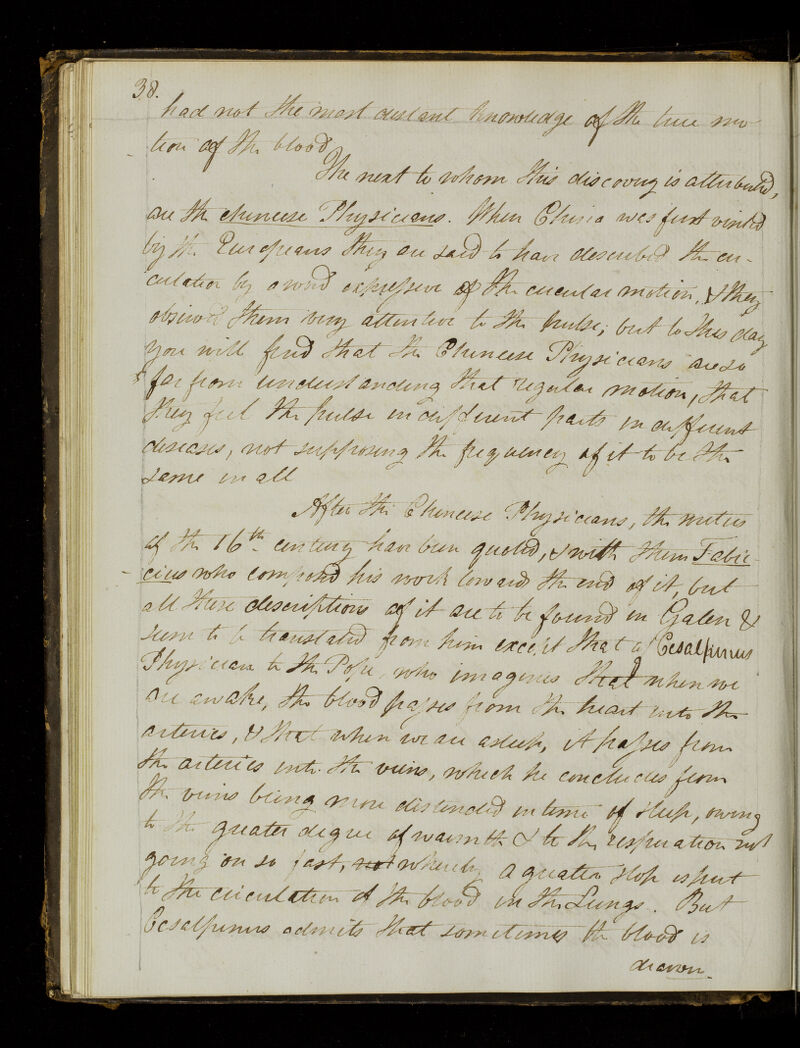 38.
had not the most distant knowledge of the true mo-
tion of the blood
The next to whom this discovery is attributed,
are the chineese Physicians. When China was first visited
by the Europeans they are said to have described the cir-
culation by a word expressive of the circular motion, & they
observed them very attentive to the pulse; but to this day
you will find that the Chineese Physicians are so
far from understanding that regular motion, that
they feel the pulse in different parts in different
diseases, not supposing the frequency of it to be the
same in all
After the Chineese Physicians, the writers
of the 16th century have been quoted, & with them Fabri-
cius who composed his work towards the end of it, but
all these descriptions of it are to be found in Galen &
seem to be translated from him except that of Cesalpinus
Physician to the Pope, who imagines that when we
are awake, the blood passes from the heart into the
arteries, & that when we are asleep, it passes from
the arteries into the veins, which he concludes from
the veins being more distended in time of sleep, owing
to the greater degree of warmth & to the respiration not
going on so fast, not whereby a greater stop is put
to the circulation of the blood in the Lungs. But
Cesalpinus admits that sometimes the blood is
drawn